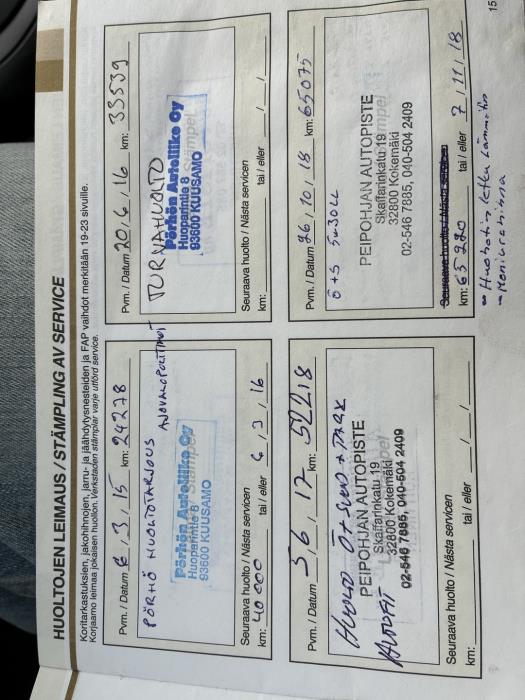 HUOLTOJEN LEIMAUS / STÄMPLING AV SERVICE
Koritarkastuksien, jakohihnojen, jarru- ja jäähdytysnesteiden ja FAP vaihdot merkitään 19-23 sivuille.
Korjaamo leimaa jokaisen huollon. Verkstaden stämplar varje utförd service.
Pvm. / Datum 6, 3, 15 km: 24278
PÖRHÖ HUOLTOTARJOUS
AJOVALOPOLTTIMOT
Pörhön Autoliike Oy
Huoparintie 8
93600 KUUSAMO
Seuraava huolto / Nästa servicen
km: 40 000 tai / eller 6 / 3 / 16
Pvm. / Datum 20, 6, 16 km: 33539
TURVAHUOLTO
Pörhön Autoliike Oy
Huoparintie 8
93600 KUUSAMO
Seuraava huolto / Nästa servicen
km: tai / eller / /
Pvm. / Datum 5, 6, 17 km: 52218
HUOLTO Ö+S
PEIPOHJAN AUTOPISTE
Skaffarinkatu 19
32800 Kokemäki
02-546 7885, 040-504 2409
Seuraava huolto / Nästa servicen
km: tai / eller / /
Pvm. / Datum 26, 10, 18 km: 65075
Ö+S 5W30LL
PEIPOHJAN AUTOPISTE
Skaffarinkatu 19
32800 Kokemäki
02-546 7885, 040-504 2409
Seuraava huolto / Nästa servicen
km: 65220 tai / eller 7 / 11 / 18
- Moniurahihna
15